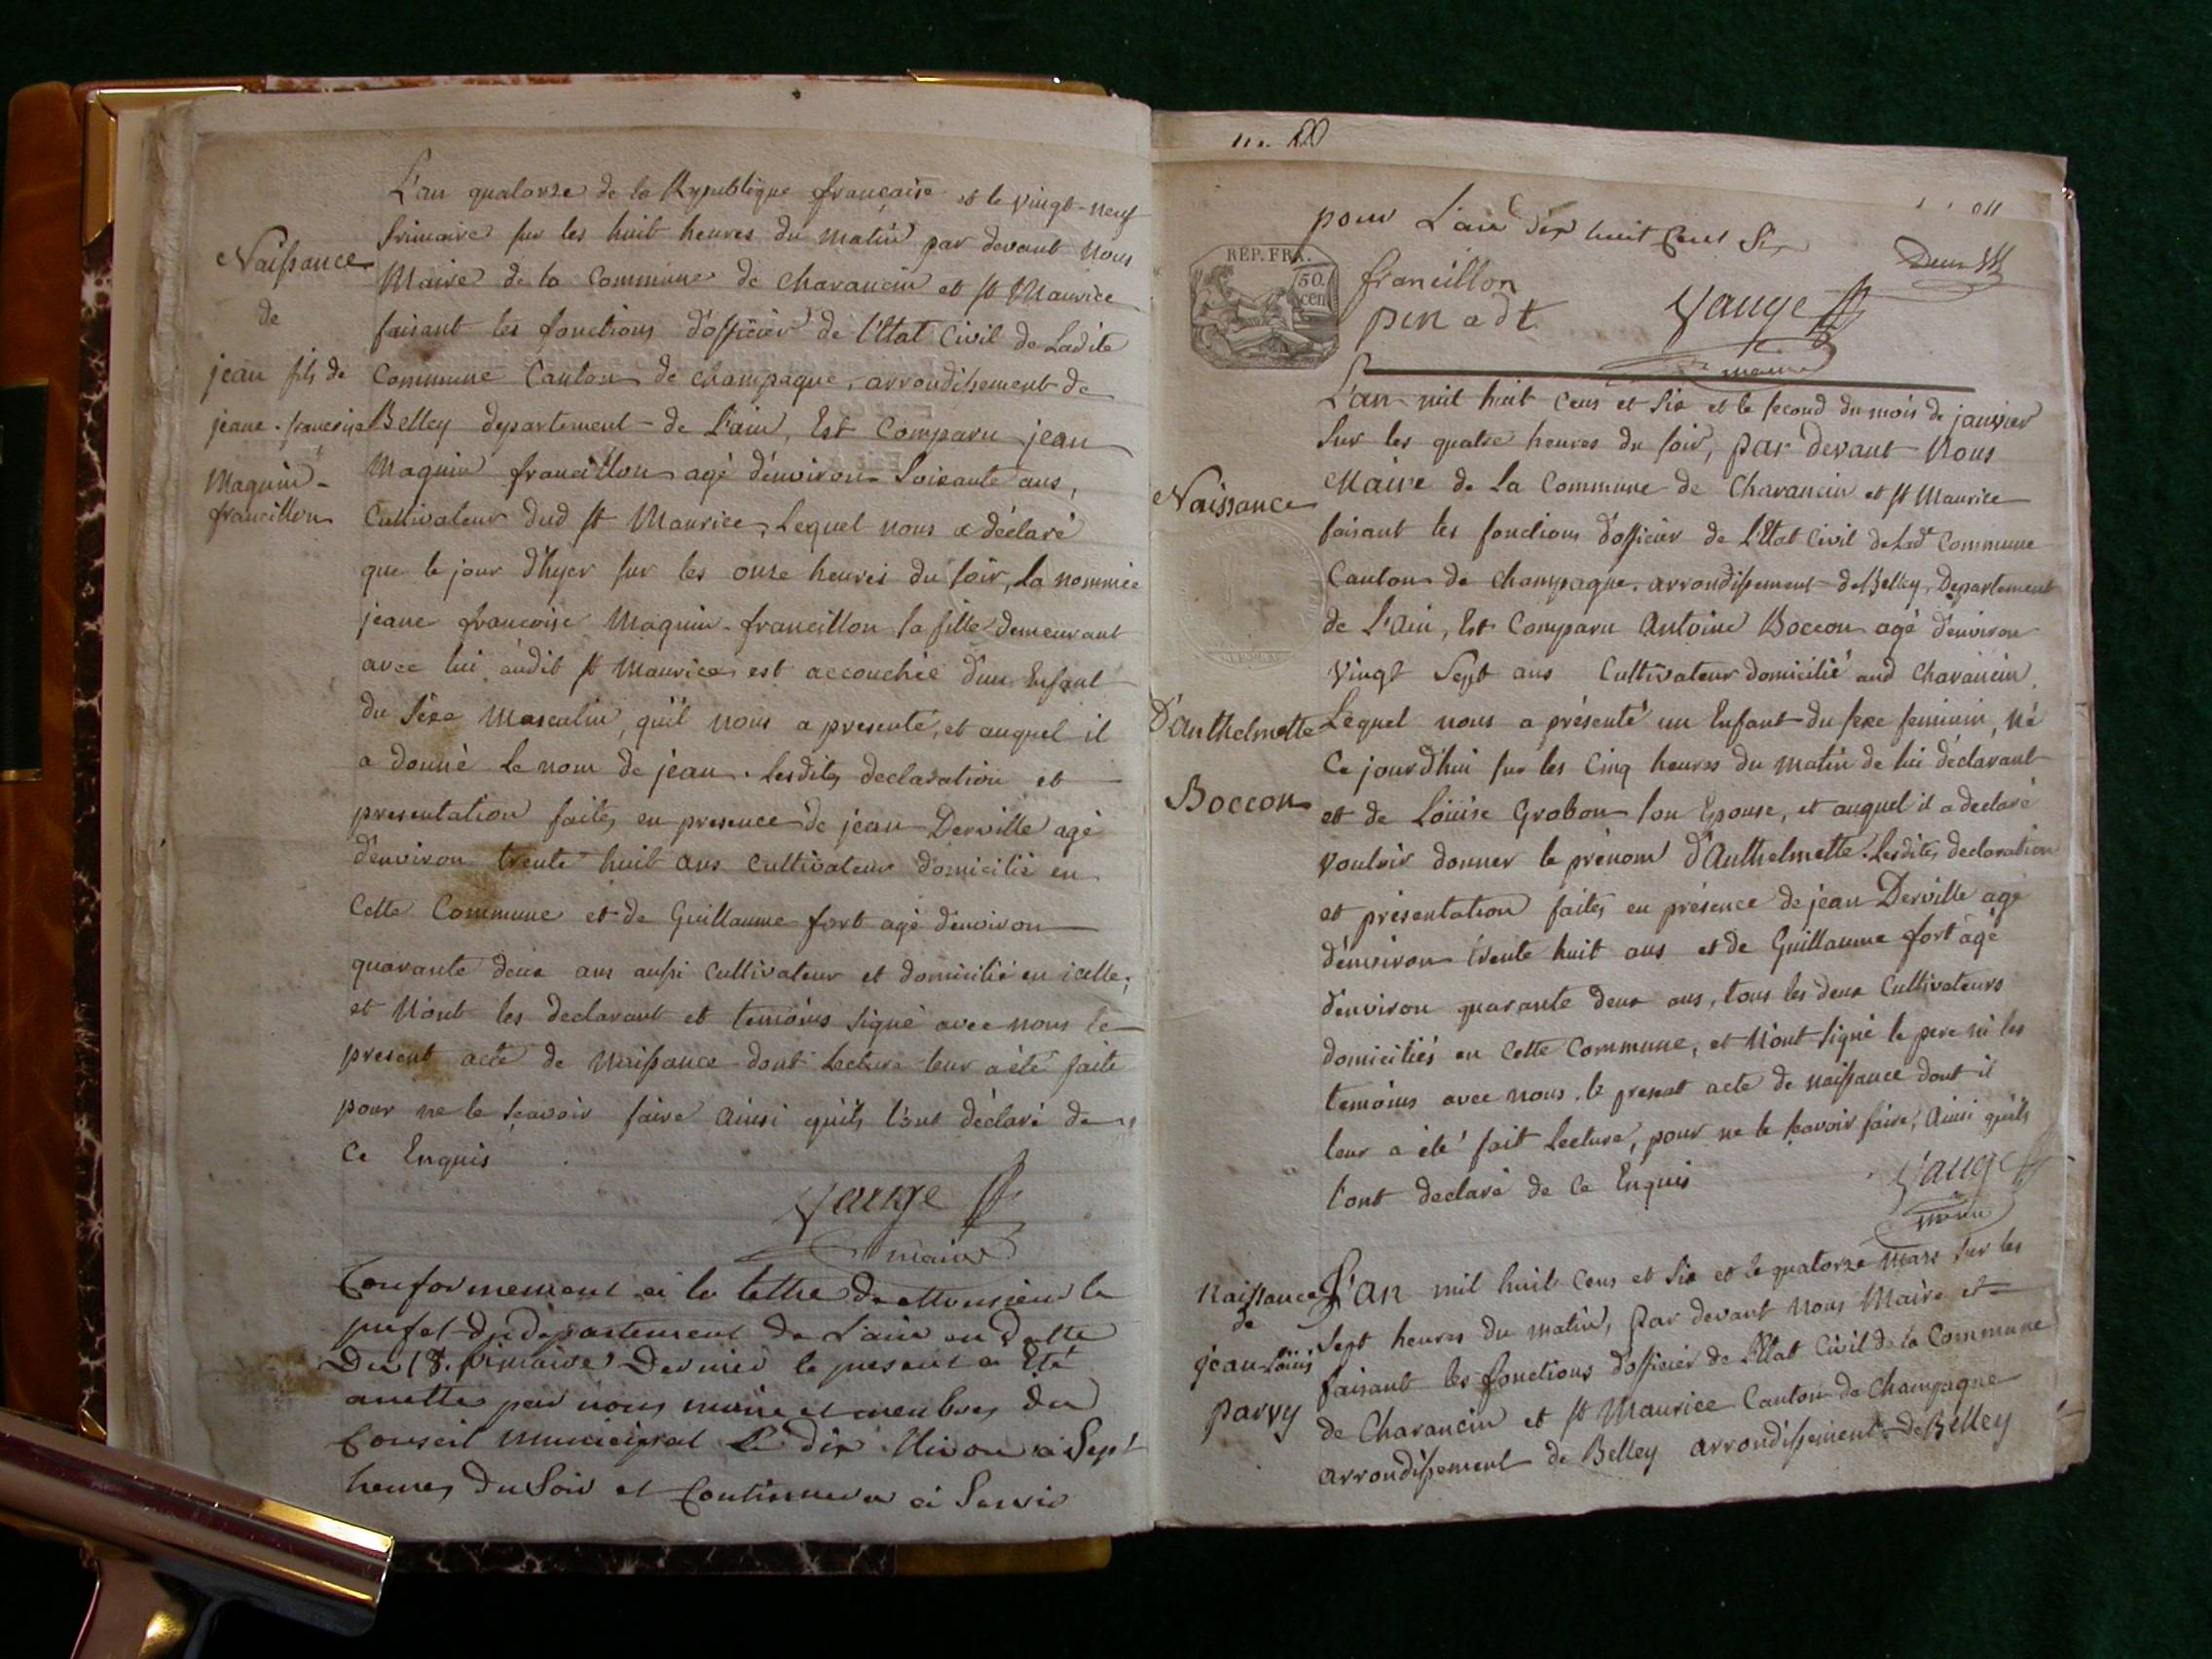 L'an quatorze de la Republique française et le vingt-neuf
frimaire sur les huit heures du matin par devant nous
Maire de la Commune de Charancin et st Maurice
faisant les fonctions d'officier de l'Etat Civil de Ladite
Commune Canton de champagne, arrondissement de
Belley departement de L'ain, Est Comparu jean
Maguin francillon agé d'environ Soixante ans,
Cultivateur dud st Maurice, Lequel nous a déclaré
que le jour d'hyer sur les onze heures du soir, la nommée
jeane francoise Maguin-francillon sa fille demeurant
avec lui audit st Maurice est accouchée d'un Enfant
du Sexe Masculin, qu'il nous a presenté, et auquel il
a donné Le nom de jean. Lesdites declaration et
presentation faites en presence de jean Derville agé
d'environ trente huit ans Cultivateur domicilié en
Cette Commune et de Guillaume fort agé d'environ
quarante deux ans aussi Cultivateur et domicilié en icelle;
et N'ont les declarant et temoins signé avec nous le
present acte de Naissance dont Lecture leur a été faite
pour ne le sçavoir faire Ainsi qu'ils l'ont déclaré de
Ce Enquis
Yauge
maire
Conformement a la lettre de Monsieur le
prefet du departement de L'ain en datte
Du 18. frimaire Dernier le present a Eté
aretté par nous maire et membres du
Conseil municipal Le dix Nivose a Sept
heures Du Soir et Continuera a Servir
Naissance
de
jean fils de
jeane-francoise
Maguin-
francillon
pour L'an dix huit Cent Six
REP. FRA.
50
cen
francillon
pin adt
Yauge
maire
L'an mil huit Cens et Six et le second du mois de janvier
Sur les quatre heures du soir, par devant Nous
Maire de La Commune de Charancin et st Maurice
faisant les fonctions d'officier de L'Etat Civil de Ladt Commune
Canton de Champagne, arrondissement de Belley, Departement
de L'Ain, Est Comparu Antoine Boccon agé d'environ
Vingt Sept ans Cultivateur domicilié aud Charancin
Lequel nous a présenté un Enfant du sexe feminin, né
Ce jourd'hui sur les Cinq heures du matin de lui déclarant
et de Loüise Grobon son Epouse, et auquel il a declaré
vouloir donner le prénom d'Anthelmette. Lesdites declaration
et présentation faites en présence de jean Derville agé
d'environ trente huit ans et de Guillaume fort âgé
d'environ quarante deux ans, tous les deux Cultivateurs
domiciliés en Cette Commune, et N'ont signé le pere ni les
temoins avec nous, le presnt acte de naissance dont il
leur a été fait Lecture, pour ne le sçavoir faire, Ainsi qu'ils
l'ont declaré de Ce Enquis
Yauge
maire
Naissance
D'Anthelmette
Boccon
L'An mil huit Cens et Six et le quatorze Mars Sur les
Sept heures du matin, Par devant Nous Maire et
faisant les fonctions d'officier de L'Etat Civil de la Commune
de Charancin et st Maurice Canton de Champagne
arrondissement de Belley arrondissement de Belley
Naissance
de
jean-Loüis
parvy